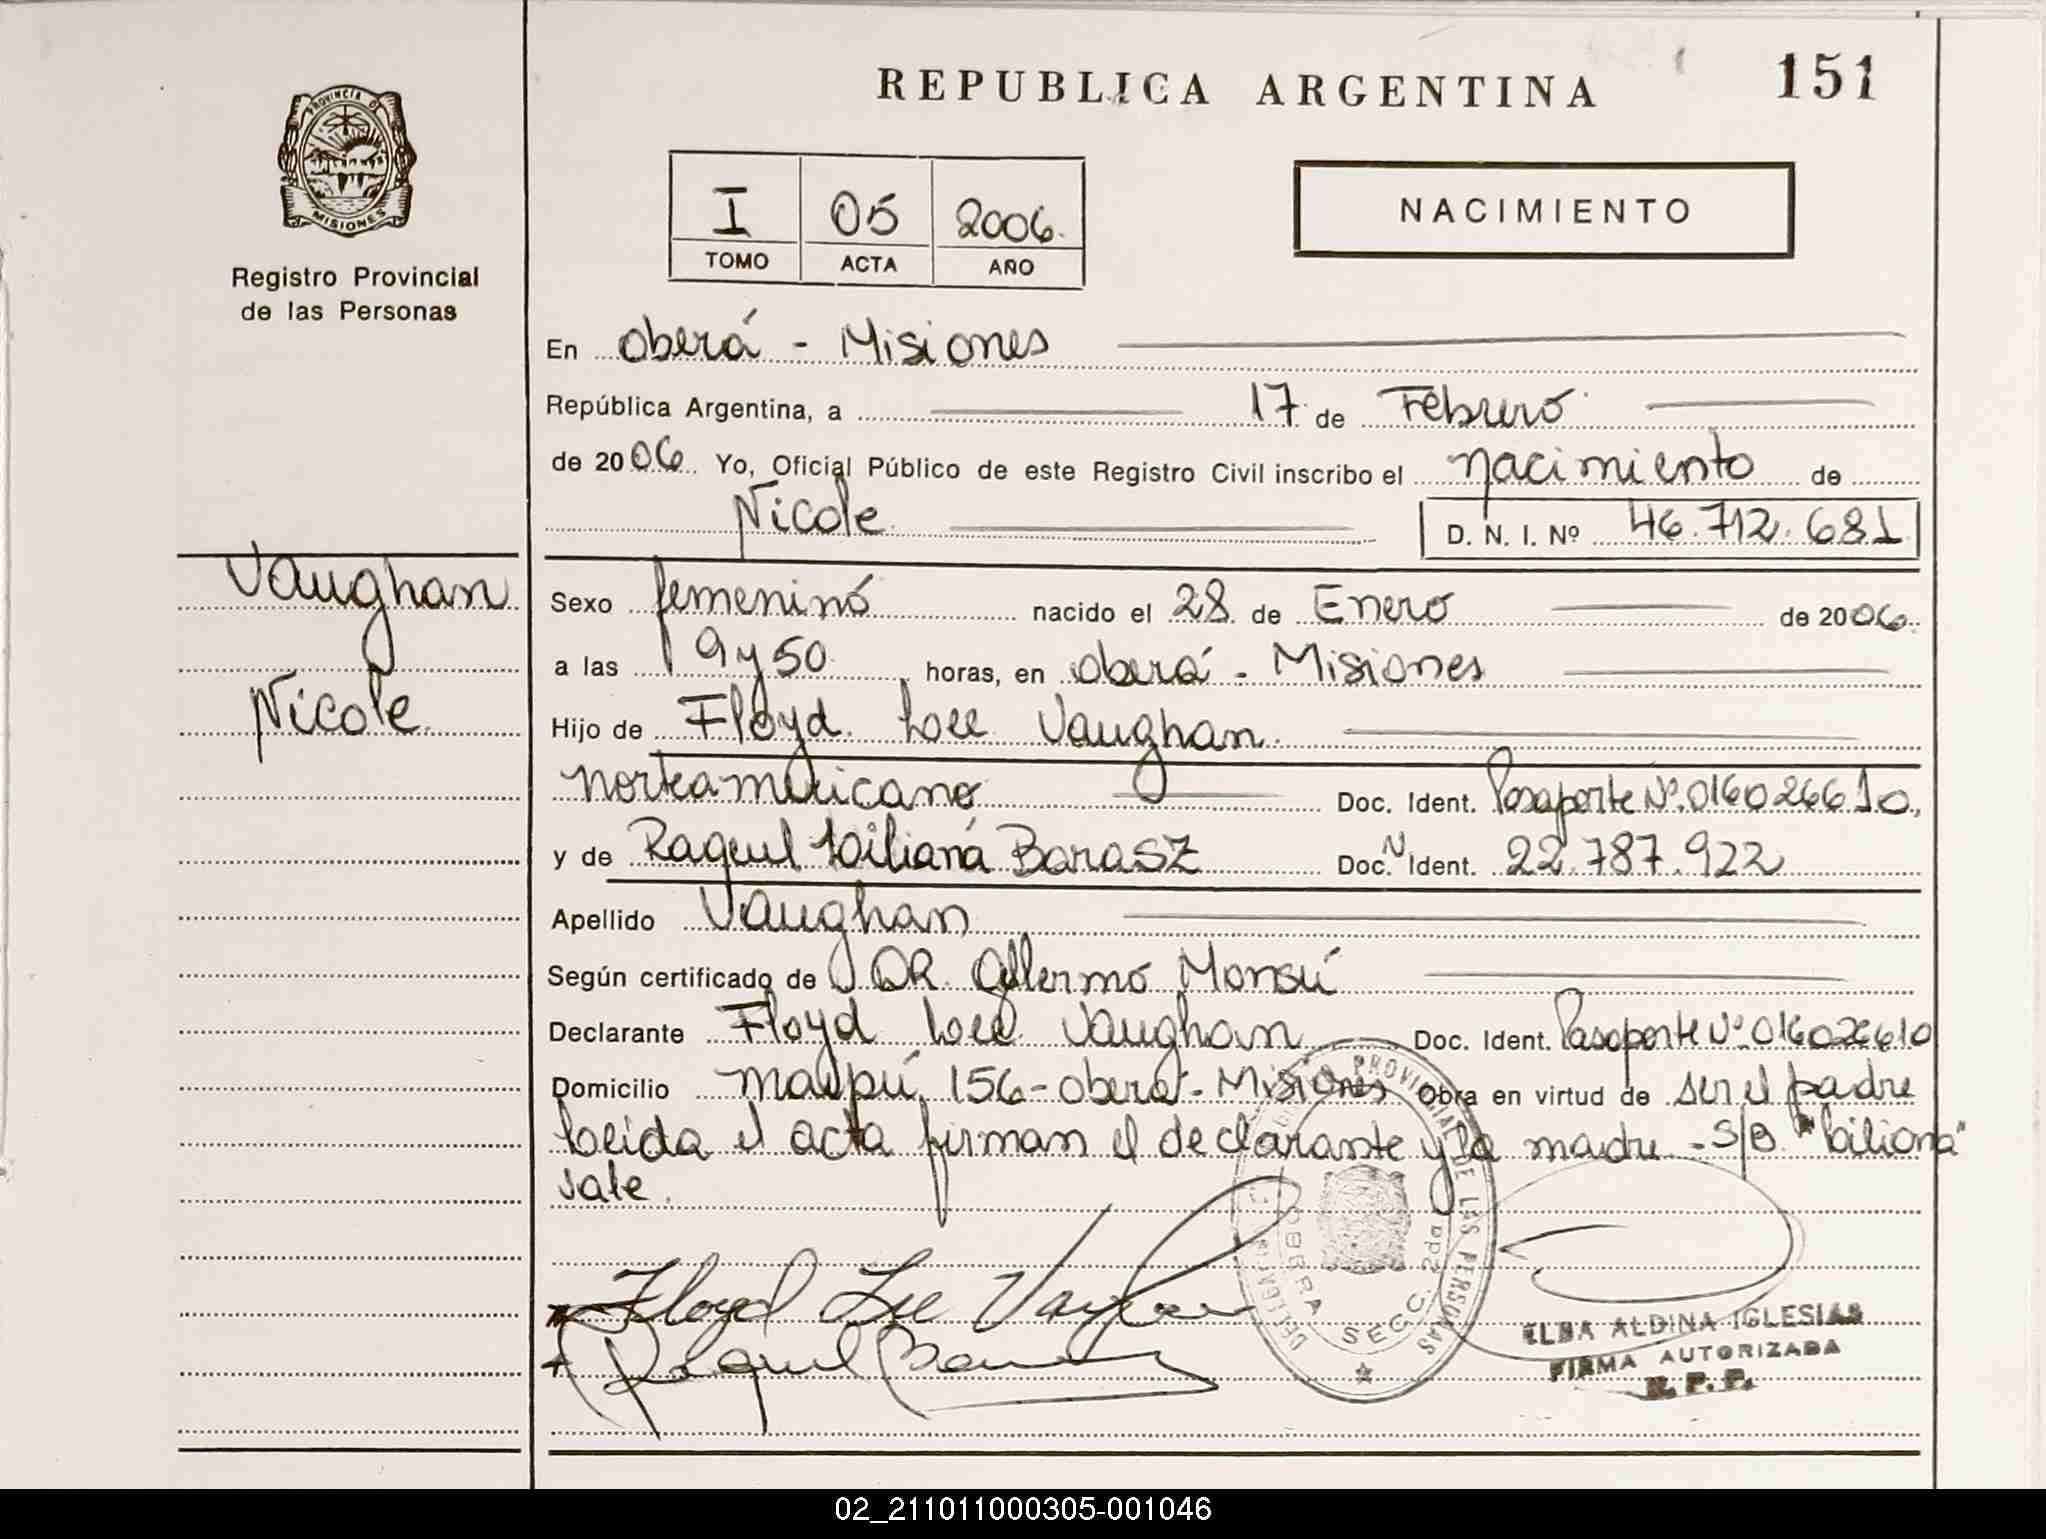 REPUBLICA ARGENTINA
151
PROVINCIA D
MISIONES
Registro Provincial
de las Personas
I 05 2006.
TOMO ACTA AÑO
NACIMIENTO
En Oberá - Misiones
República Argentina, a 17 de Febrero
de 2006 Yo, Oficial Público de este Registro Civil inscribo el Nacimiento de
Nicole D. N. I. Nº 46.712.681
Vaughan
Nicole
Sexo femenino nacido el 28 de Enero de 2006.
a las 9 y 50 horas, en Oberá - Misiones
Hijo de Floyd Lee Vaughan
norteamericano Doc. Ident. Pasaporte Nº 016026610,
y de Raquel Liliana Barasz Doc. Ident. 22.787.922
Apellido Vaughan
Según certificado de DR. Monsú
Declarante Floyd Lee Vaughan Doc. Ident. Pasaporte Nº 016026610
Domicilio Maipú 156 - Oberá - Misiones Obra en virtud de ser el padre
Leida el acta firman el declarante y la madre - S/B "Liliana"
Vale.
Floyd Lee Vaughan
Raquel
DELEGACION
PROVINCIAL DE LAS PERSONAS
OBERA SECC. 2da
ELBA ALDINA IGLESIAS
FIRMA AUTORIZADA
R. P. P.
02_211011000305-001046